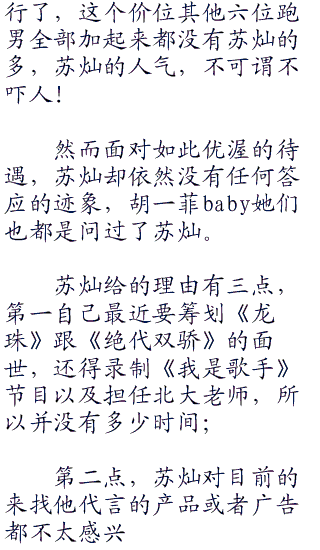 行了，这个价位其他六位跑
男全部加起来都没有苏灿的
多，苏灿的人气，不可谓不
吓人！
然而面对如此优渥的待
遇，苏灿却依然没有任何答
应的迹象，胡一菲baby她们
也都是问过了苏灿。
苏灿给的理由有三点，
第一自己最近要筹划《龙
珠》跟《绝代双骄》的面
世，还得录制《我是歌手》
节目以及担任北大老师，所
以并没有多少时间；
第二点，苏灿对目前的
来找他代言的产品或者广告
都不太感兴